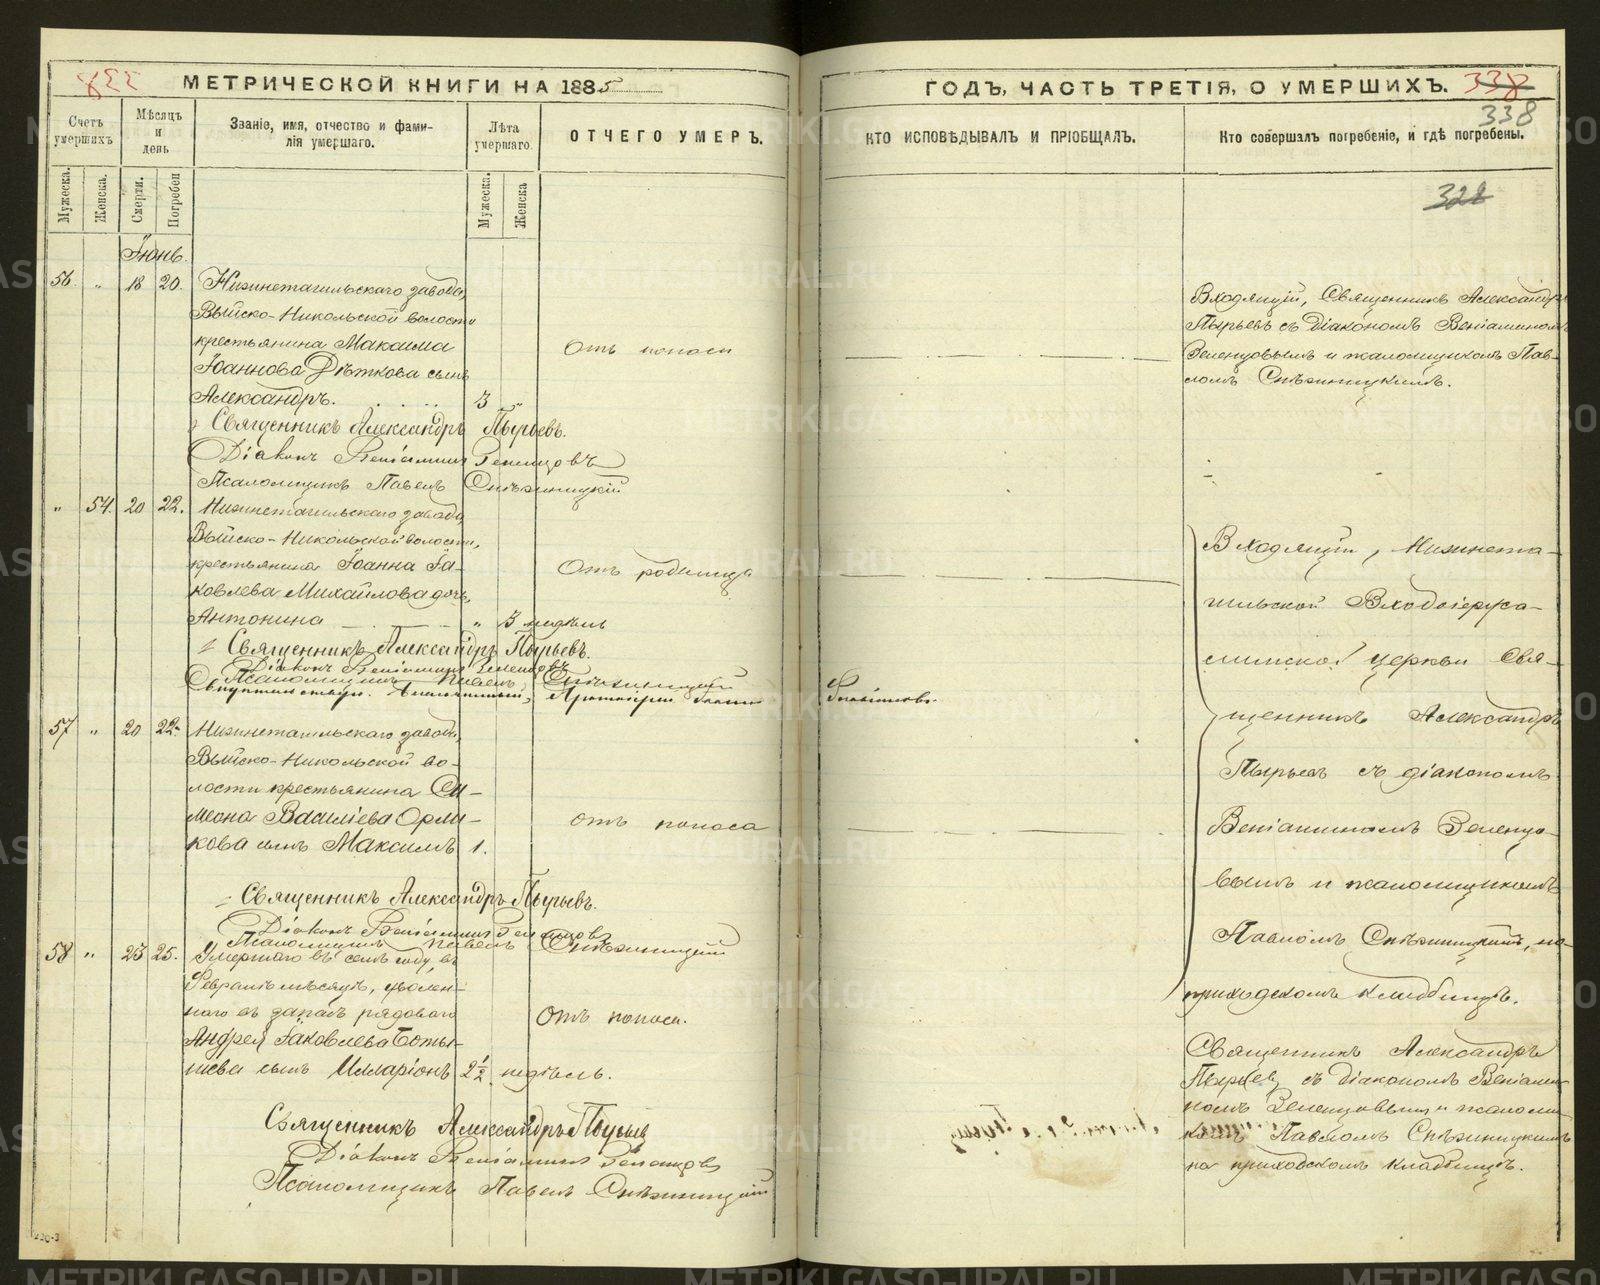 МЕТРИЧЕСКОЙ КНИГИ НА 1885
Счетъ умершихъ.
Мѣсяцъ и день
Званіе, имя, отчество и фами-
лія умершаго.
Лѣта умершаго.
ОТЧЕГО УМЕРЪ.
Мужеска. Женска. Смерти. Погребен Мужеска. Женска
Іюнь.
56. " 18 20. Нижнетагильскаго завода,
Выйско-Никольской волости
крестьянина Максима
Отъ поноса
Іоаннова Дѣткова сынъ
Александръ. 3 "
Священникъ Александръ Пырьевъ.
Діаконъ Веніаминъ Зеленцовъ
Псаломщикъ Павелъ Снѣжницкій
" 54. 20 22. Нижнетагильскаго завода,
Выйско-Никольской волости,
крестьянина Іоанна Іа-
Отъ родимца
ковлева Михайлова дочь,
Антонина " 3 недѣли
Священникъ Александръ Пырьевъ.
Діаконъ Веніаминъ Зеленцовъ
Псаломщикъ Павелъ Снѣжницкій
Благочинный, Протоіерей
57 " 20 22. Нижнетагильскаго завода,
Выйско-Никольской во-
лости крестьянина Си-
меона Василіева Орли-
отъ поноса
кова сынъ Максимъ 1.
Священникъ Александръ Пырьевъ.
Діаконъ Веніаминъ Зеленцовъ
Псаломщикъ Павелъ Снѣжницкій
58 " 23 25. Умершаго въ семъ году, въ
Февралѣ мѣсяцѣ, уволен-
наго въ запасъ рядоваго
Отъ поноса.
Андрея Іаковлева Боты-
шева сынъ Илларіонъ 2½ недѣль.
Священникъ Александръ Пырьевъ
Діаконъ Веніаминъ Зеленцовъ
Псаломщикъ Павелъ Снѣжницкій
ГОДЪ, ЧАСТЬ ТРЕТІЯ, О УМЕРШИХЪ. 338
338
КТО ИСПОВѢДЫВАЛЪ И ПРІОБЩАЛЪ.
Кто совершалъ погребеніе, и гдѣ погребены.
328
Входящій, Священникъ Александръ
Пырьевъ съ Діакономъ Веніаминомъ
Зеленцовымъ и псаломщикомъ Пав-
ломъ Снѣжницкимъ.
Входящій, Нижнета-
гильской Входоіеруса-
лимской церкви Свя-
щенникъ Александръ
Пырьевъ съ діакономъ
Веніаминомъ Зеленцо-
вымъ и псаломщикомъ
Павломъ Снѣжницкимъ, на
приходскомъ кладбищѣ.
Священникъ Александръ
Пырьевъ съ діакономъ Веніами-
номъ Зеленцовымъ и псаломщи-
комъ Павломъ Снѣжницкимъ
на приходскомъ кладбищѣ.
METRIKI.GASO-URAL.RU